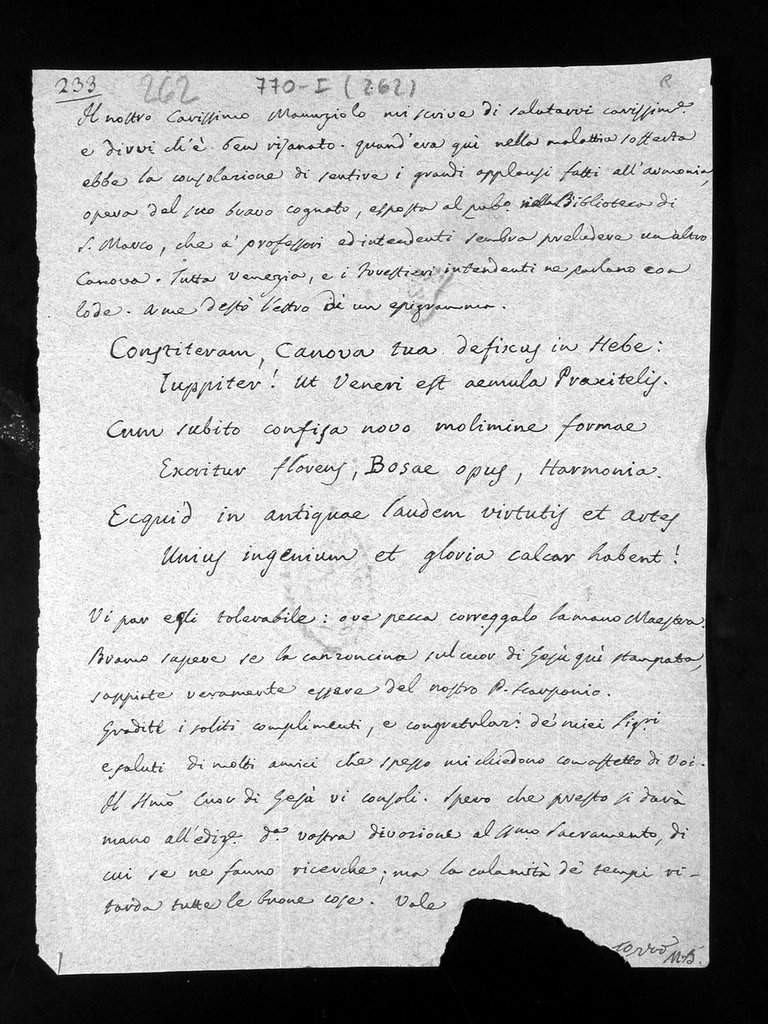 233 262 770-I (262) R
Il nostro Carissimo Maurizio lo mi scrive di salutarvi carissime.
e dirvi ch'è ben risanato. quand'era quì nella malattia sofferta
ebbe la consolazione di sentire i grandi applausi fatti all'armonia,
opera del suo bravo cognato, esposta al pubo. nella Biblioteca di
S. Marco, che a' professori ed intendenti sembra preludere un altro
Canova. Tutta Venezia, e i forestieri intendenti ne parlano con
lode. A me destò l'estro di un epigramma.
Constiteram, Canova tua defixus in Hebe:
Iuppiter! ut Veneri est aemula Praxitelis.
Cum subito confisa novo molimine formae
Exoritur florens, Bosae opus, Harmonia.
Ecquid in antiquae laudem virtutis et artes
Unius ingenium et gloria calcar habent!
Vi par egli tolerabile: ove pecca correggalo la mano Maestra.
Bramo sapere se la canzoncina sul cuor di Gesù quì stampata,
sappiate veramente essere del nostro P. Scarponio.
Gradite i soliti complimenti, e congratulazi. de' miei Sigri
e saluti di molti amici che spesso mi chiedono con affetto di Voi.
Il Smo Cuor di Gesù vi consoli. Spero che presto si darà
mano all'edize. da. vostra divozione al Smo Sacramento, di
cui se ne fanno ricerche; ma la calamità de' tempi ri-
tarda tutte le buone cose. Vale
M.B.